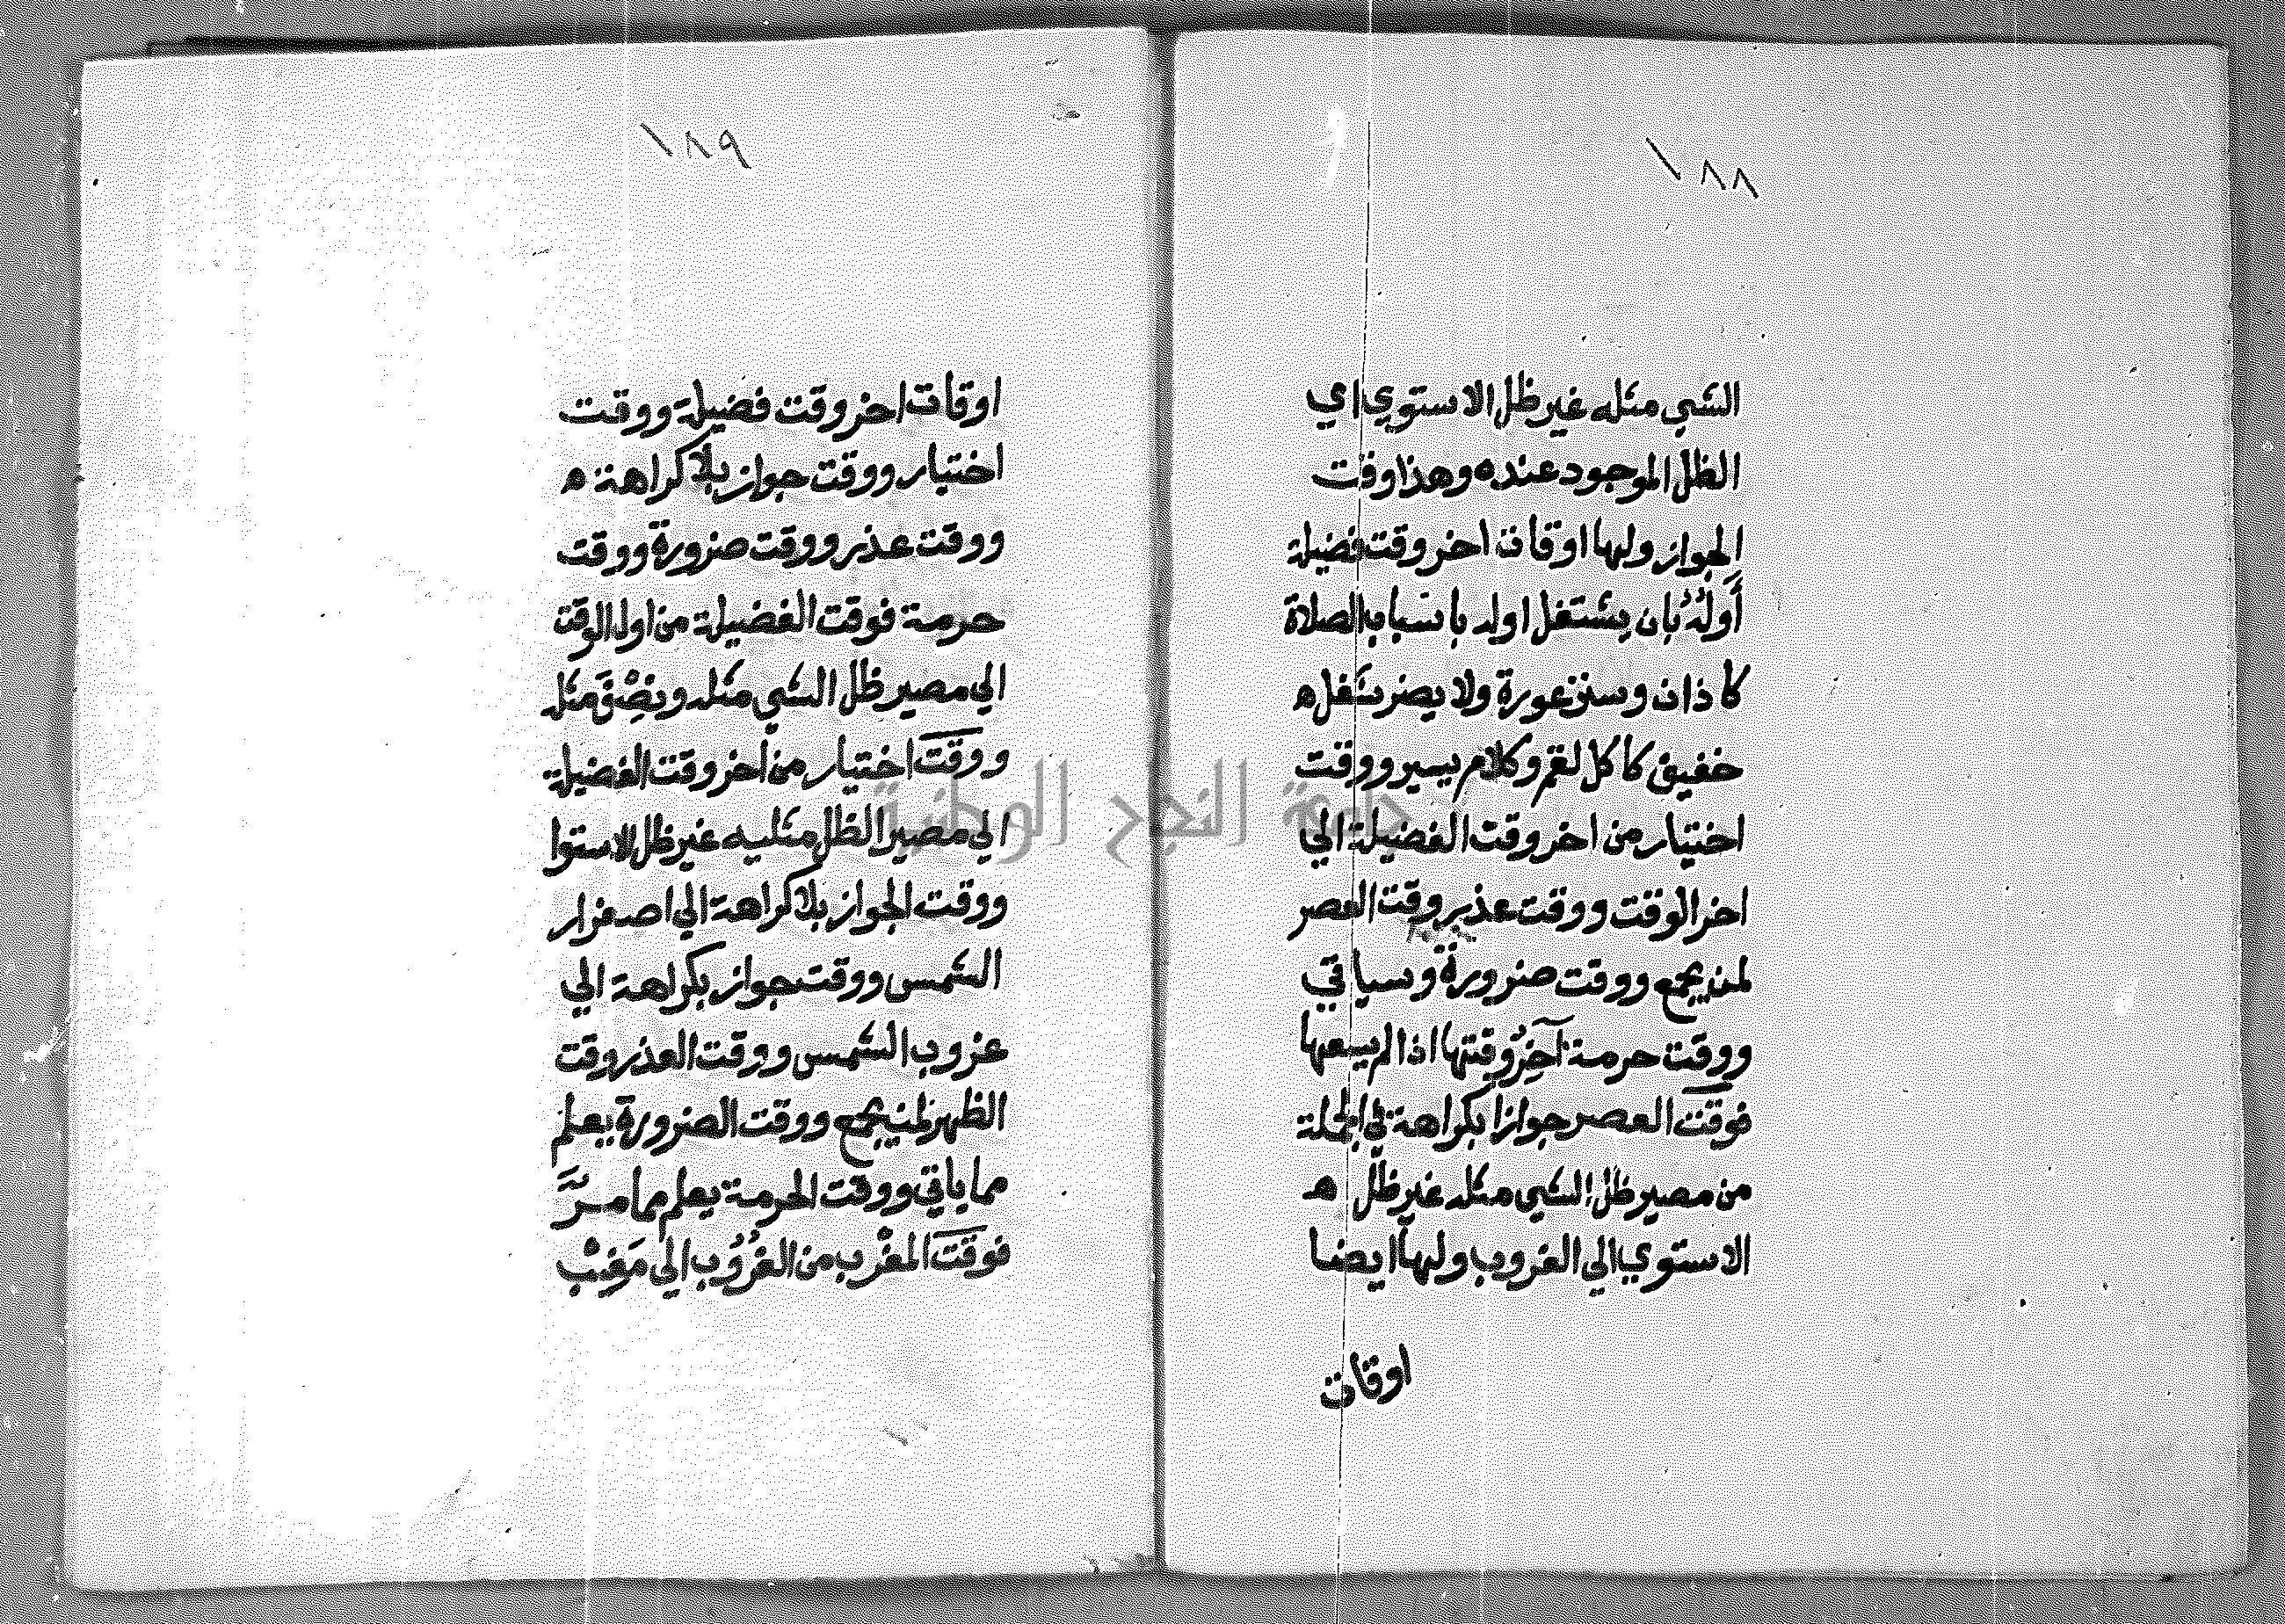 ١٨٨
الشي مثله غير ظل الاستوي اي
الظل الموجود عنده وهذا وقت
الجواز ولها اوقات اخر وقت فضيلة
أَولَهُ بان يشتغل اوله باسباب الصلاة
كاذان وستر عورة ولا يضر شغل ه
خفيف كاكل لقم وكلام يسير ووقت
اختيار من اخر وقت الفضيلة الي
اخر الوقت ووقت عذر وقت العصر
لمن يجمع ووقت ضرورة وسياتي
ووقت حرمة آخِرُ وقتها اذا لم يسعها
فوقت العصر جوازا بكراهة في الجملة
من مصير ظل الشي مثله غير ظل ه
الاستوي الي الغروب ولها ايضا
اوقات
١٨٩
اوقات اخر وقت فضيلة ووقت
اختيار ووقت جواز بلا كراهة ه
ووقت عذر ووقت ضرورة ووقت
حرمة فوقت الفضيلة من اول الوقت
الي مصير ظل الشي مثله ونِصْفَ مثله
ووقت اختيار من اخر وقت الفضيلة
الي مصير الظل مثليه غير ظل الاستوا
ووقت الجواز بلا كراهة الي اصفرار
الشمس ووقت جواز بكراهة الي
غروب الشمس ووقت العذر وقت
الظهر لمن يجمع ووقت الضرورة يعلم
مما ياتي ووقت الحرمة يعلم مما مرَّ
فوقت المغْرب من الغُرُوب الي مَغِيْب
جامعة النجاح الوطنية